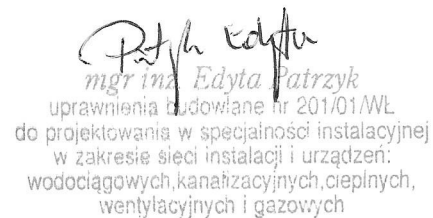 Patrzyk Edyta
mgr inż. Edyta Patrzyk
uprawnienia budowlane nr 201/01/WŁ
do projektowania w specjalności instalacyjnej
w zakresie sieci instalacji i urządzeń:
wodociągowych,kanalizacyjnych,cieplnych,
wentylacyjnych i gazowych